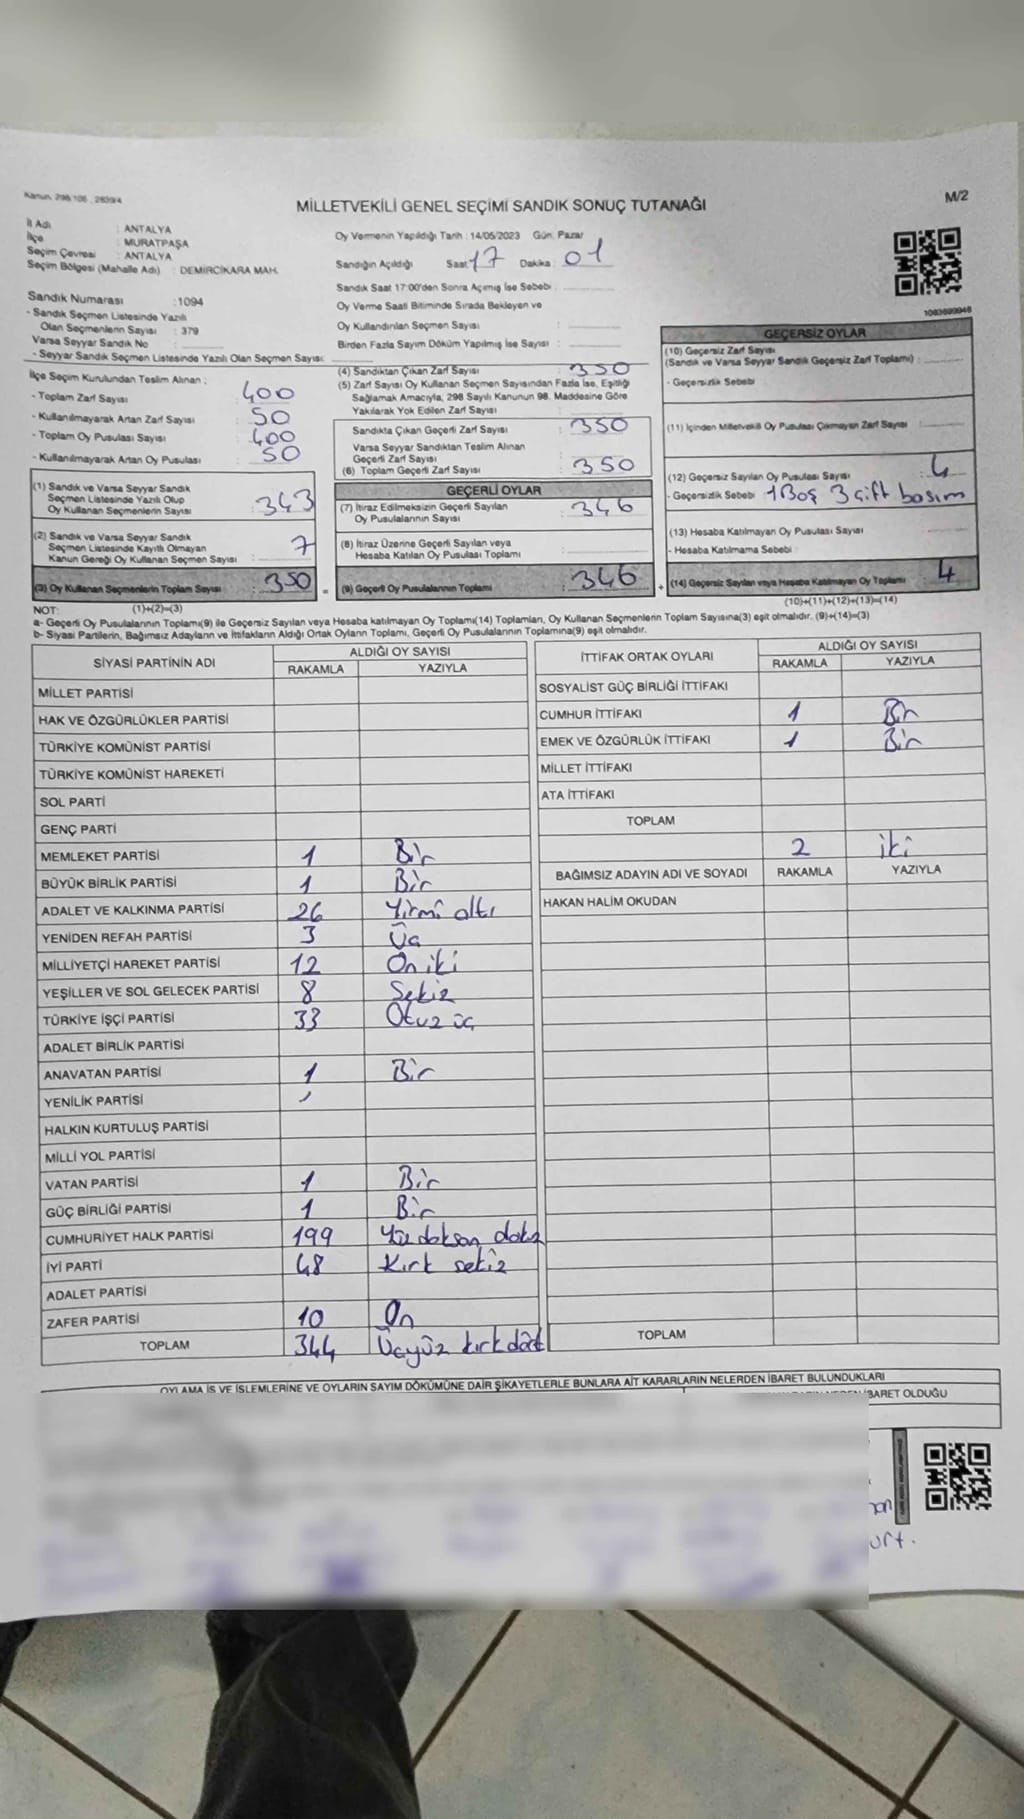 Kanun: 298/105 , 2839/4
M/2
MİLLETVEKİLİ GENEL SEÇİMİ SANDIK SONUÇ TUTANAĞI
İl Adı : ANTALYA
İlçe : MURATPAŞA
Seçim Çevresi : ANTALYA
Seçim Bölgesi (Mahalle Adı) : DEMİRCİKARA MAH.
Sandık Numarası : 1094
- Sandık Seçmen Listesinde Yazılı
Olan Seçmenlerin Sayısı : 379
Varsa Seyyar Sandık No :
- Seyyar Sandık Seçmen Listesinde Yazılı Olan Seçmen Sayısı:
Oy Vermenin Yapıldığı Tarih : 14/05/2023 Gün: Pazar
Sandığın Açıldığı Saat 17 Dakika : 01
Sandık Saat 17:00'den Sonra Açımış İse Sebebi :
Oy Verme Saati Bitiminde Sırada Bekleyen ve
Oy Kullandırılan Seçmen Sayısı :
Birden Fazla Sayım Döküm Yapılmış İse Sayısı :
1093699946
İlçe Seçim Kurulundan Teslim Alınan :
- Toplam Zarf Sayısı : 400
- Kullanılmayarak Artan Zarf Sayısı : 50
- Toplam Oy Pusulası Sayısı : 400
- Kullanılmayarak Artan Oy Pusulası : 50
(1) Sandık ve Varsa Seyyar Sandık
Seçmen Listesinde Yazılı Olup
Oy Kullanan Seçmenlerin Sayısı : 343
(2) Sandık ve Varsa Seyyar Sandık
Seçmen Listesinde Kayıtlı Olmayan
Kanun Gereği Oy Kullanan Seçmen Sayısı : 7
(3) Oy Kullanan Seçmenlerin Toplam Sayısı : 350
(4) Sandıktan Çıkan Zarf Sayısı : 350
(5) Zarf Sayısı Oy Kullanan Seçmen Sayısından Fazla İse, Eşitliği
Sağlamak Amacıyla, 298 Sayılı Kanunun 98. Maddesine Göre
Yakılarak Yok Edilen Zarf Sayısı :
Sandıkta Çıkan Geçerli Zarf Sayısı : 350
Varsa Seyyar Sandıktan Teslim Alınan
Geçerli Zarf Sayısı :
(6) Toplam Geçerli Zarf Sayısı : 350
GEÇERLİ OYLAR
(7) İtiraz Edilmeksizin Geçerli Sayılan
Oy Pusulalarının Sayısı : 346
(8) İtiraz Üzerine Geçerli Sayılan veya
Hesaba Katılan Oy Pusulası Toplamı :
(9) Geçerli Oy Pusulalarının Toplamı : 346
GEÇERSİZ OYLAR
(10) Geçersiz Zarf Sayısı
(Sandık ve Varsa Seyyar Sandık Geçersiz Zarf Toplamı) :
- Geçersizlik Sebebi
(11) İçinden Milletvekili Oy Pusulası Çıkmayan Zarf Sayısı :
(12) Geçersiz Sayılan Oy Pusulası Sayısı : 4
- Geçersizlik Sebebi 1 Boş 3 çift basım
(13) Hesaba Katılmayan Oy Pusulası Sayısı :
- Hesaba Katılmama Sebebi :
(14) Geçersiz Sayılan veya Hesaba Katılmayan Oy Toplamı : 4
NOT: (1)+(2)=(3)
(10)+(11)+(12)+(13)=(14)
a- Geçerli Oy Pusulalarının Toplamı(9) ile Geçersiz Sayılan veya Hesaba katılmayan Oy Toplamı(14) Toplamları, Oy Kullanan Seçmenlerin Toplam Sayısına(3) eşit olmalıdır. (9)+(14)=(3)
b- Siyasi Partilerin, Bağımsız Adayların ve İttifakların Aldığı Ortak Oyların Toplamı, Geçerli Oy Pusulalarının Toplamına(9) eşit olmalıdır.
SİYASİ PARTİNİN ADI ALDIĞI OY SAYISI
RAKAMLA YAZIYLA
MİLLET PARTİSİ
HAK VE ÖZGÜRLÜKLER PARTİSİ
TÜRKİYE KOMÜNİST PARTİSİ
TÜRKİYE KOMÜNİST HAREKETİ
SOL PARTİ
GENÇ PARTİ
MEMLEKET PARTİSİ 1 Bir
BÜYÜK BİRLİK PARTİSİ 1 Bir
ADALET VE KALKINMA PARTİSİ 26 Yirmi altı
YENİDEN REFAH PARTİSİ 3 Üç
MİLLİYETÇİ HAREKET PARTİSİ 12 On iki
YEŞİLLER VE SOL GELECEK PARTİSİ 8 Sekiz
TÜRKİYE İŞÇİ PARTİSİ 33 Otuz üç
ADALET BİRLİK PARTİSİ
ANAVATAN PARTİSİ 1 Bir
YENİLİK PARTİSİ
HALKIN KURTULUŞ PARTİSİ
MİLLİ YOL PARTİSİ
VATAN PARTİSİ 1 Bir
GÜÇ BİRLİĞİ PARTİSİ 1 Bir
CUMHURİYET HALK PARTİSİ 199 Yüz doksan dokuz
İYİ PARTİ 48 Kırk sekiz
ADALET PARTİSİ
ZAFER PARTİSİ 10 On
TOPLAM 344 Üçyüz kırk dört
İTTİFAK ORTAK OYLARI ALDIĞI OY SAYISI
RAKAMLA YAZIYLA
SOSYALİST GÜÇ BİRLİĞİ İTTİFAKI
CUMHUR İTTİFAKI 1 Bir
EMEK VE ÖZGÜRLÜK İTTİFAKI 1 Bir
MİLLET İTTİFAKI
ATA İTTİFAKI
TOPLAM 2 iki
BAĞIMSIZ ADAYIN ADI VE SOYADI RAKAMLA YAZIYLA
HAKAN HALİM OKUDAN
TOPLAM
OYLAMA İŞ VE İŞLEMLERİNE VE OYLARIN SAYIM DÖKÜMÜNE DAİR ŞİKAYETLERLE BUNLARA AİT KARARLARIN NELERDEN İBARET BULUNDUKLARI
İBARET OLDUĞU